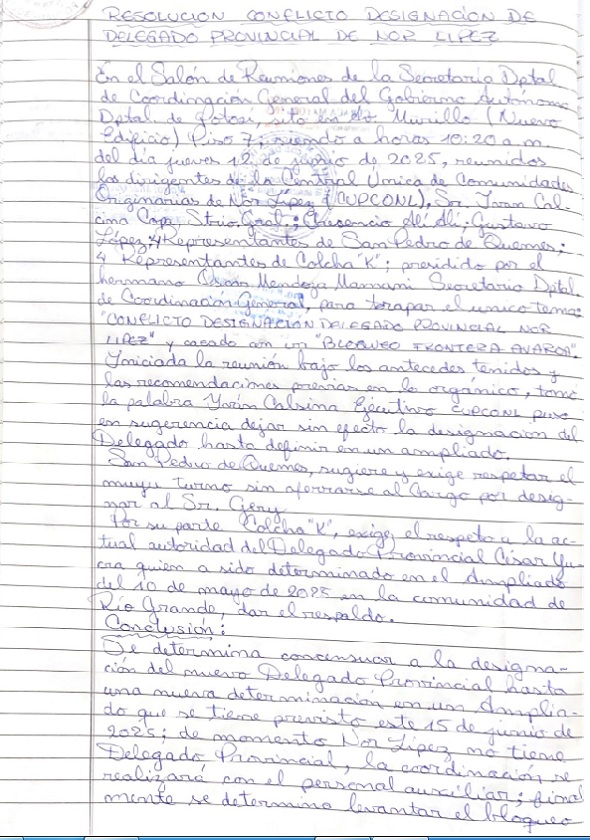 RESOLUCION CONFLICTO DESIGNACIÓN DE
DELEGADO PROVINCIAL DE NOR LIPEZ
En el Salón de Reuniones de la Secretaria Dptal
de Coordinación General del Gobierno Autónomo
Dptal. de Potosí, sito en Murillo (Nuevo
Edificio) Piso 7; siendo a horas 10:20 a.m.
del día jueves 12 de junio de 2025, reunidos
los dirigentes de la Central Única de Comunidades
Originarias de Nor Lípez (CUPCONL), Sr. Ivan Cal-
cina Cap. Strio. Gral.; Ausencio Alí Alí; Gustavo
López; 4 Representantes de San Pedro de Quemes;
4 Representantes de Colcha "K"; presidido por el
hermano Oscar Mendoza Mamani Secretario Dptal.
de Coordinación General, para el unico tema:
"CONFLICTO DESIGNACIÓN DELEGADO PROVINCIAL NOR
LIPEZ" y con un "BLOQUEO FRONTERA AVAROA".
Yniciada la reunión bajo los antecedes tenidos y
las recomendaciones previas en lo orgánico, tomó
la palabra Yván Calsina Ejecutivo CUPCONL puso
en sugerencia dejar sin efecto la designación del
Delegado hasta definir en un ampliado.
San Pedro de Quemes, sugiere y exige respetar el
muyu turno sin aferrarse al Cargo por desig-
nar al Sr. Geny
Por su parte Colcha "K", exige, el respeto a la ac-
tual autoridad del Delegado Provincial César Yu-
cra quien a sido determinado en el Ampliado
del 10 de mayo de 2025 en la comunidad de
Río Grande, dar el respaldo.
Conclusión:
Se determina concensuar a la designa-
ción del nuevo Delegado Provincial hasta
una nueva determinación en un Amplia-
do que se tiene previsto este 15 de junio de
2025; de momento Nor Lipez no tiene
Delegado Provincial, la coordinación se
realizará con el personal auxiliar; final
mente se determina levantar el bloqueo